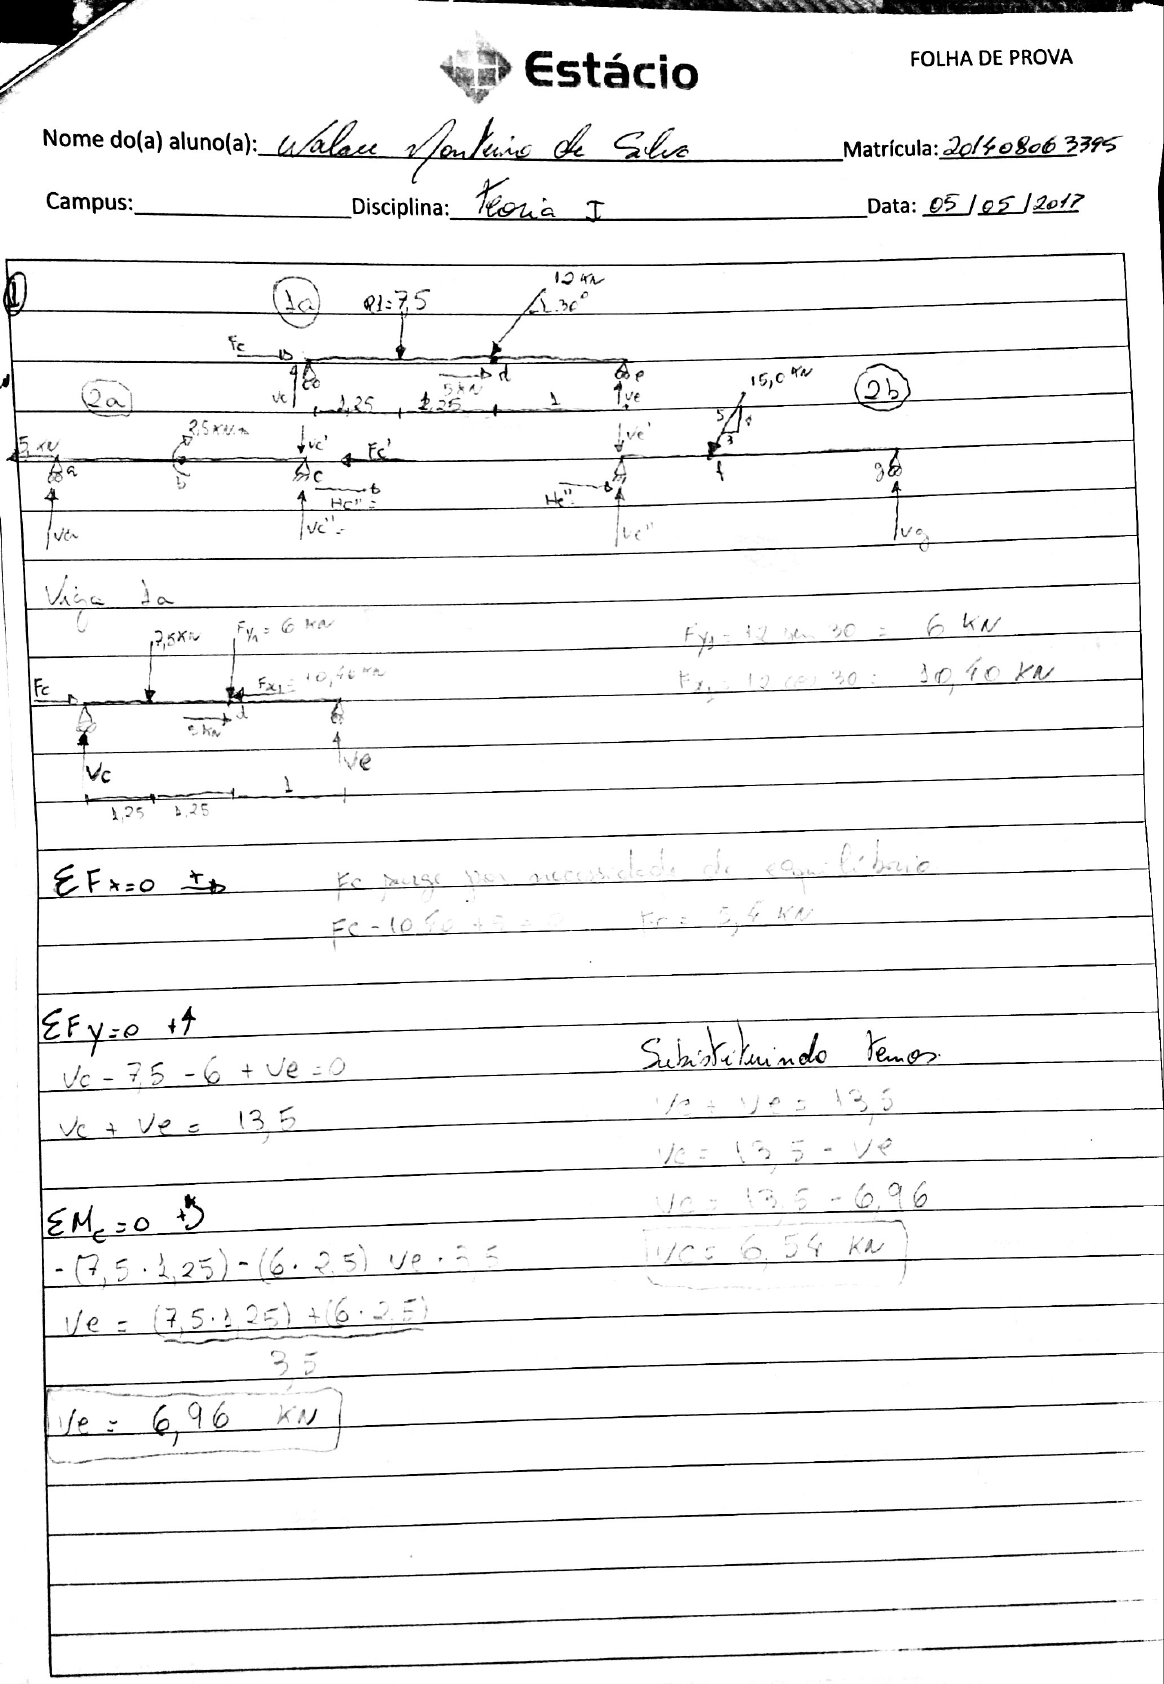 Estácio
FOLHA DE PROVA
Nome do(a) aluno(a): Walace Monteiro de Silva Matrícula: 201408063395
Campus: Disciplina: Teoria I Data: 05/05/2017
1
1a R1=7,5 12 KN 30°
Fc
c d e
Vc 5KN Ve
1,25 1,25 1
2a 2b
15,0 KN
5 KN Vc' Fc' Ve' 5 4 3
a b c f g
Hc''= He''=
Va Vc''= Ve'' Vg
Viga 1a
7,5KN Fy1= 6 KN Fy1= 12 sen 30 = 6 KN
Fc Fx1= 10,40 KN Fx1= 12 cos 30 = 10,40 KN
5 KN d
Vc Ve
1,25 1,25 1
ΣFx=0 +
Fc surge por necessidade de equilíbrio
Fc - 10,40 + 5 = 0 Fc = 5,4 KN
ΣFy=0 +↑
Vc - 7,5 - 6 + Ve = 0
Vc + Ve = 13,5
Substituindo temos
Vc + Ve = 13,5
Vc = 13,5 - Ve
Vc = 13,5 - 6,96
Vc = 6,54 KN
ΣMc=0 +
- (7,5 · 1,25) - (6 · 2,5) Ve · 3,5
Ve = (7,5 · 1,25) + (6 · 2,5)
3,5
Ve = 6,96 KN